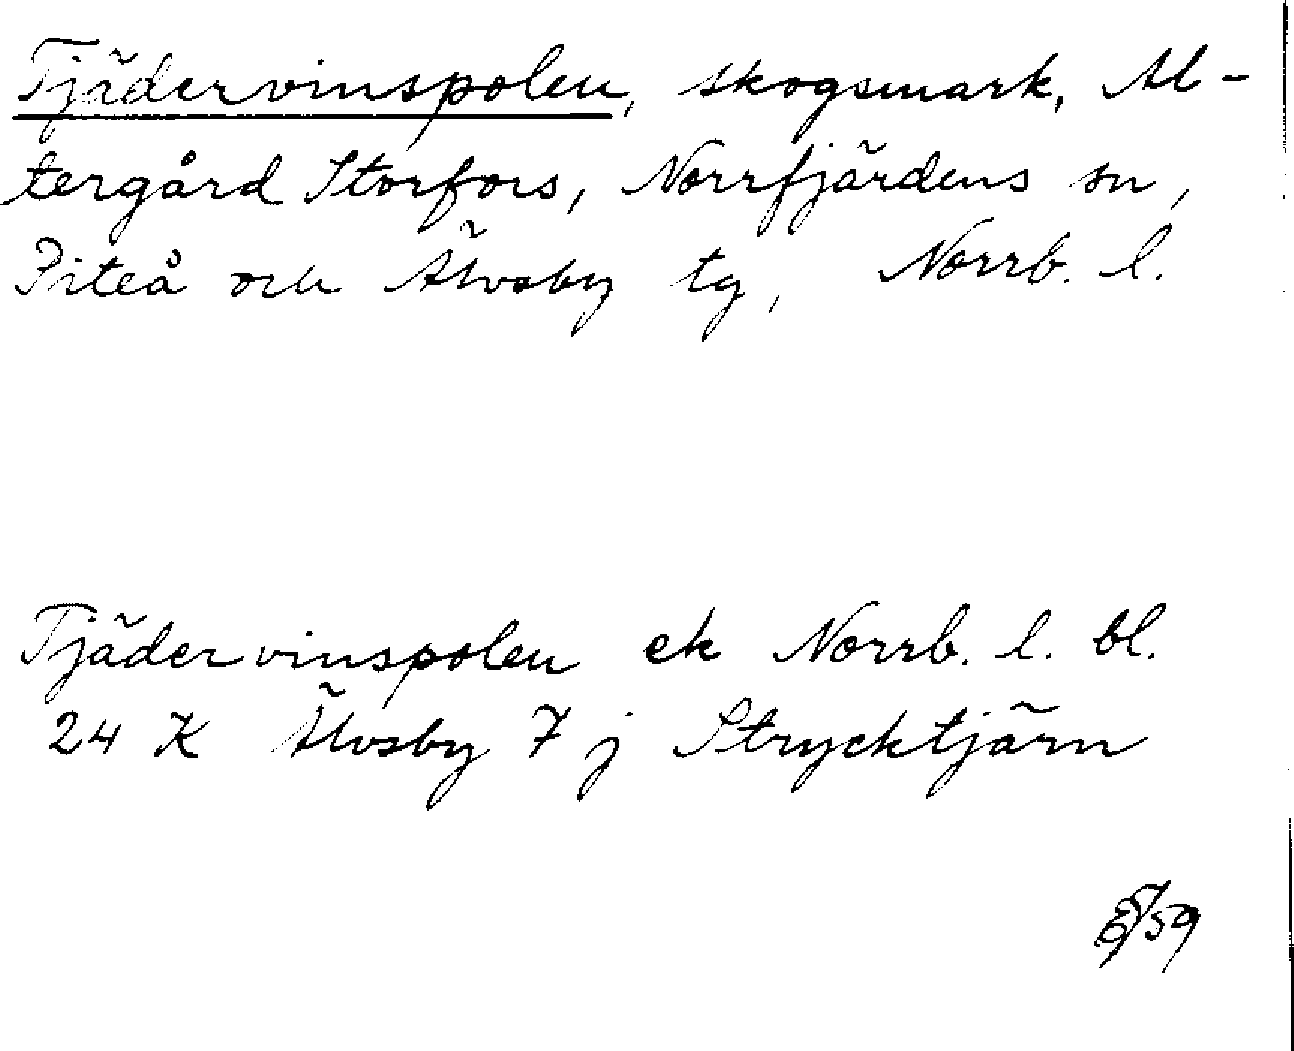 Tjädervinspolen, skogsmark, Al-
tergård Storfors, Norrfjärdens sn,
Piteå och Älvsby tg, Norrb. l.
Tjädervinspolen ek Norrb. l. bl.
24 K Älvsby 7 j Strycktjärn
/59